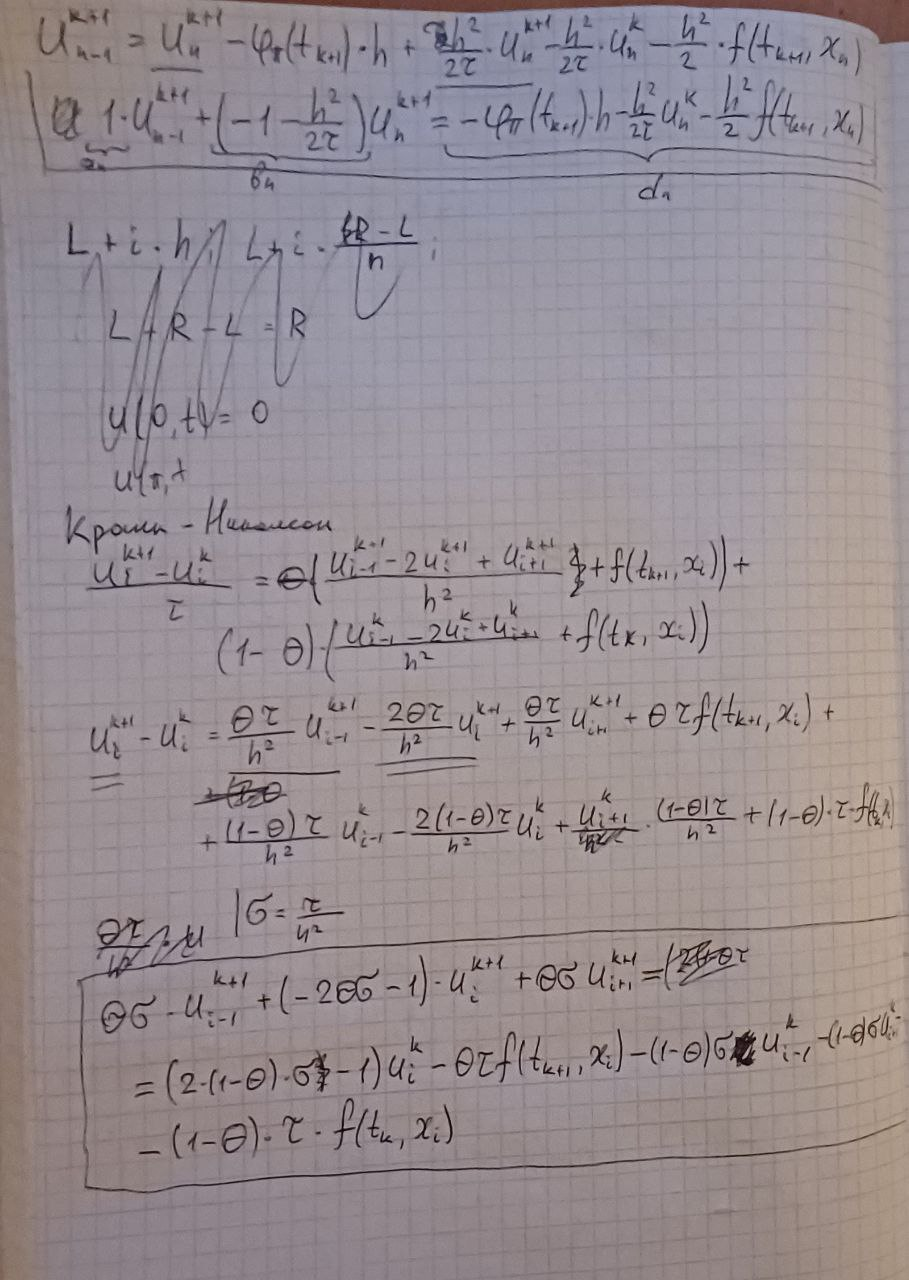 u_{n-1}^{k+1} = u_n^{k+1} - φ_π(t_{k+1})·h + \frac{h^2}{2τ}·u_n^{k+1} - \frac{h^2}{2τ}·u_n^k - \frac{h^2}{2}·f(t_{k+1}, x_n)
1·u_{n-1}^{k+1} + (-1 - \frac{h^2}{2τ})u_n^{k+1} = -φ_π(t_{k+1})·h - \frac{h^2}{2τ}u_n^k - \frac{h^2}{2}f(t_{k+1}, x_n)
a_n b_n d_n
L + i·h; L + i·\frac{R-L}{n};
L + R - L = R
u(0,t) = 0
u(π,t
Кранк-Николсон
\frac{u_i^{k+1} - u_i^k}{τ} = θ(\frac{u_{i-1}^{k+1} - 2u_i^{k+1} + u_{i+1}^{k+1}}{h^2} + f(t_{k+1}, x_i)) +
(1-θ)·(\frac{u_{i-1}^k - 2u_i^k + u_{i+1}^k}{h^2} + f(t_k, x_i))
u_i^{k+1} - u_i^k = \frac{θτ}{h^2} u_{i-1}^{k+1} - \frac{2θτ}{h^2} u_i^{k+1} + \frac{θτ}{h^2} u_{i+1}^{k+1} + θτf(t_{k+1}, x_i) +
+ \frac{(1-θ)τ}{h^2} u_{i-1}^k - \frac{2(1-θ)τ}{h^2} u_i^k + u_{i+1}^k·\frac{(1-θ)τ}{h^2} + (1-θ)·τ·f(t_k, x_i)
| σ = \frac{τ}{h^2}
θσ·u_{i-1}^{k+1} + (-2θσ - 1)·u_i^{k+1} + θσ u_{i+1}^{k+1} =
= (2·(1-θ)·σ - 1)u_i^k - θτf(t_{k+1}, x_i) - (1-θ)σ u_{i-1}^k - (1-θ)σu_{i+1}^k -
- (1-θ)·τ·f(t_k, x_i)